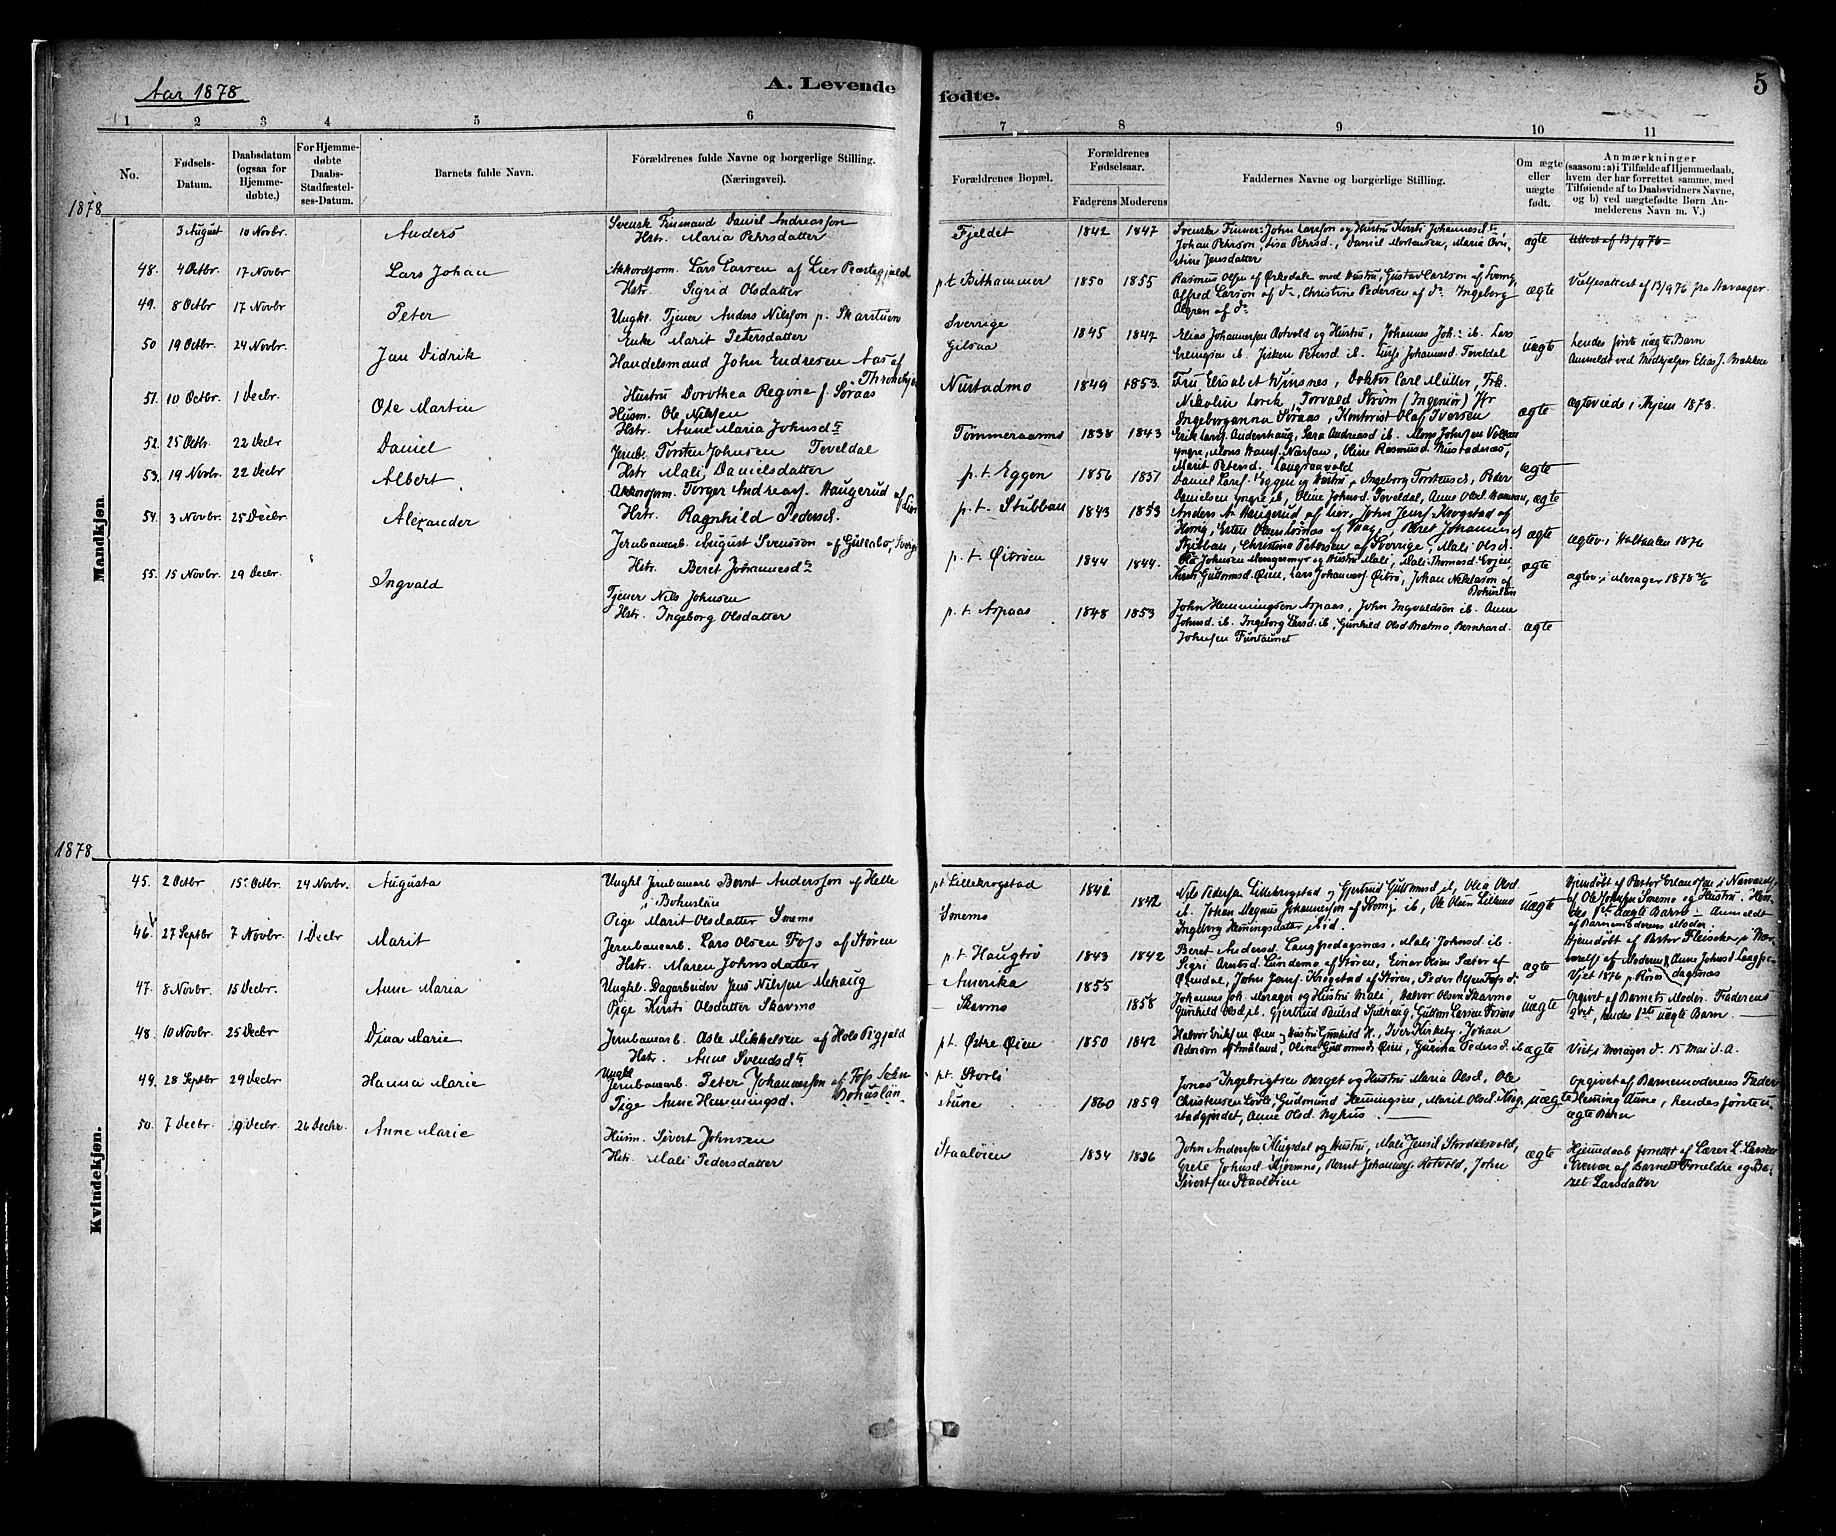 Aar 1878
A. Levende fødte.
5
1 2 3 4 5 6 7 8 9 10 11
No.
Fødsels-Datum.
Daabsdatum (ogsaa for Hjemmedøbte.)
For Hjemmedøbte Daabs-Stadfæstelses-Datum.
Barnets fulde Navn.
Forældrenes fulde Navne og borgerlige Stilling. (Næringsvei).
Forældrenes Bopæl.
Forældrenes Fødselsaar.
Faderens Moderens
Faddernes Navne og borgerlige Stilling.
Om ægte eller uægte født.
Anmærkninger (saasom: a) i Tilfælde af Hjemmedaab, hvem der har forrettet samme, med Tilføiende af to Daabsvidners Navne, og b) ved uægtefødte Børn Anmelderens Navn m. V.)
1878
Mandkjøn.
3 August 10 Novbr. Anders
Svensk Finmand Daniel Andreasson
Hstr. Maria Pehrsdatter
Fjeldet 1842 1847
Svenske Finner: John Larsson og Hustru Kersti Johannesd.
Johan Pehrson, Lisa Pehrsd., Daniel Mortensen, Maria Christine Jensdatter
ægte
Attest af 13/9 76
48. 4 Octbr. 17 Novbr Lars Johan
Akkordform. Lars Larsen af Lier Præstegjæld
Hstr. Sigrid Olsdatter
p.t. Bithammer 1850 1855
Rasmus Olsen af Ørkedalen med Hustru, Gustav Carlson af Sverig,
Alfred Larson af do, Christine Pedersen af do Ingeborg
af do
ægte
Vielsesattest af 13/9 76 fra Stavanger.
49. 8 Octbr 17 Novbr Peter
Ungkl. Tjener Anders Nilsson p. Skarstuen
Enke Marit Petersdatter
Sverige
Gilsaa 1845 1847
Elias Johannessen Rotvold og Hustru, Johannes Joh: ib. Lars
Erlingsen ib. Petersd. ib. Johannesd. Teveldal
uægte
Hendes første uægte Barn
Anmeldt ved Medhjælper Elias J. Brækken
50 19 Octbr. 24 Novbr. Jan Didrik
Handelsmand John Endresen Aas af Throndhjem
Hustru Dorothea Regine f. Søraas
Nustadmo 1849 1853.
Fru Elisabet Winsnes, Doktor Carl Müller, Frk.
Nikolin Lorck, Torvald Strøm (Ingeniør) Jfr
Ingeborganna Søraas, Kontorist Olaf Iversen
ægte
Ægteviede i Thjem 1873.
51. 10 Octbr. 1 Decbr. Ole Martin
Husm. Ole Nilsen
Hstr. Anne Maria Johnsdtr
Tømmeraasmo 1838 1843
Erik Lars. Andershaug, Sara Andreasd. ib. Mons Johnsen
yngre, Mons Hans. Oline Rasmusd. Nustadnæs,
Marit Petersd. Langsaavold
ægte
52. 25 Octbr. 22 Decbr Daniel
Jernb. Torsten Johnsen Teveldal
Hstr Mali Danielsdatter
p.t. Eggen 1856 1857
Daniel Larsf. Eggen og Hustru, Ingeborg Torstensd., Peder
Danielsen yngre ib, Oline Johnsd. Teveldal, Anne Olsd.
ægte
53. 19 Novbr. 22 Decbr Albert
Akkordform. Torger Andreas. Haugerud af Lier
Hstr. Ragnhild Pedersd.
p.t. Stubban 1843 1853
Anders A. Haugerud af Lier, John Jens. Krogstad af
Horrig, Beret Johannesd
Stubban, Christina Petersen af Sverige, Mali Olsd.
ægte
Ægtev. i Holtaalen 1876
54. 3 Novbr. 25 Decbr Alexander
Jernbanearb. August Svensson af Gullerbo, Sverige
Hstr. Beret Johannesdtr
p.t. Øitrøen 1844 1844.
Ola Johnsen Meragermyr og Hustru Mali, Mali Thomasd. Evjen
Kersti Guttormsd. Øien, Lars Johannesf. Øitrø, Johan Niklasson af Bohuslän
ægte
ægtev. i Merager 1878
55. 15 Novbr. 29 Decbr. Ingvald
Tjener Nils Johnsen
Hstr. Ingeborg Olsdatter
p.t. Aspaas 1848 1853
John Hemmingsen Aspaas, John Ingvaldsen ib. Anne
Johnsd. ib. Ingeborg Larsd. ib, Gunhild Olsd. Bratmo, Bernhard
Johnsen Funtaunet
ægte
1878
Kvindekjøn.
45. 2 Octbr 15 Octbr. 24 Novbr. Augusta
Ungkl Jernbanearb Bernt Andersson af Helle
i Bohuslän
Pige Marit Olsdatter Snemo
pt Lillekrogstad 1841
Snemo 1842
Nils Pedersen Lillekrogstad og Gjertrud Guttormsd. ib, Olea Olsd
ib. Johan Magnus Johannesson af Sverig, ib, Ole Olsen Lillemo
Ingeborg Hemingsdatter ibid.
uægte
Hjemdøbt af Pastor Erlandsen i Nærværelse
af Ole Johnsen Snemo og Hustru. Hendes 1ste uægte Barn – Anmeldt
af Barnemoderens Moder.
46. 27 Septbr 7 Novbr. 1 Decbr Marit
Jernbanearb. Lars Olsen Foss af Støren
Hstr. Maren Johnsdatter
p.t. Haugtrø 1843 1842
Beret Andersd. Langpedagsnæs, Mali Johnsd. ib.
Sigri Arntsd. Lundemo af Støren, Einar Olsen Sæter af
Øxendal, John Jensf. Krogstad af Støren, Peder Olsen Foss d.
ægte
Hjemdøbt af Pastor Fleischer i Nærværelse af Moderen og Anne Johnsd. Langpedagsnæs
Viet 1876 p. Røros
47. 8 Novbr. 15 Decbr. Anne Maria
Ungkl. Dagarbeider Jens Nilsen Mehaug
Pige Kirsti Olsdatter Skarmo
Amerika 1855
Skarmo 1858
Johannes Joh. Merager og Hustru Mali, Halvor Olsen Skarmo
Gunhild Olsd. ib., Gjertrud Paulsd. Guttorm Larsen
uægte
Opgivet af Barnets Moder. Faderens
hendes 1ste uægte Barn.
48. 10 Novbr. 25 Decbr. Dina Marie
Jernbanearb. Asle Mikkelsen af Hols Pgjæld
Hstr. Anne Svendsdtr
pt. Østre Øien 1850 1842
Halvor Eriksen Øien og Hustru Gunhild H., Iver Kirkeby, Johan
Pederson af Småland, Oline Guttormsd. Øien, Gurina Pedersd. ib
ægte
Viet i Merager d. 15 Mai d. A.
49. 28 Septbr 29 Decbr. Hanna Marie
Ungkl
Jernbanearb. Peter Johannesson af Foss Sokn Bohuslän
Pige Anne Hemmingsd.
pt. Storli
Aune 1860 1859
Jonas Ingebrigtsen Berget og Hustru Maria Olsd, Ole
Christensen Lovli, Gudmund Hemingsen, Marit Olsd
Anne Olsd. Nyhus
uægte
Opgivet af Barnemoderens Fader
Heming Aune, hendes første uægte Barn
50. 7 Decbr. 9 Decbr. 26 Decbr. Anne Marie
Husm. Sivert Johnsen
Hstr. Mali Pedersdatter
Staaløien 1834 1836
John Andersen Flugsdal og Hustru, Mali Jensd. Stordalsvold,
Grete Johnsd. Hjermo, Bernt Johannesf. Rotvold, John
Sivertsen Staaløien
ægte
Hjemmedaab forrettet af Lærer L. Larsen
i Overvær af Barnets Forældre og Beret Larsdatter